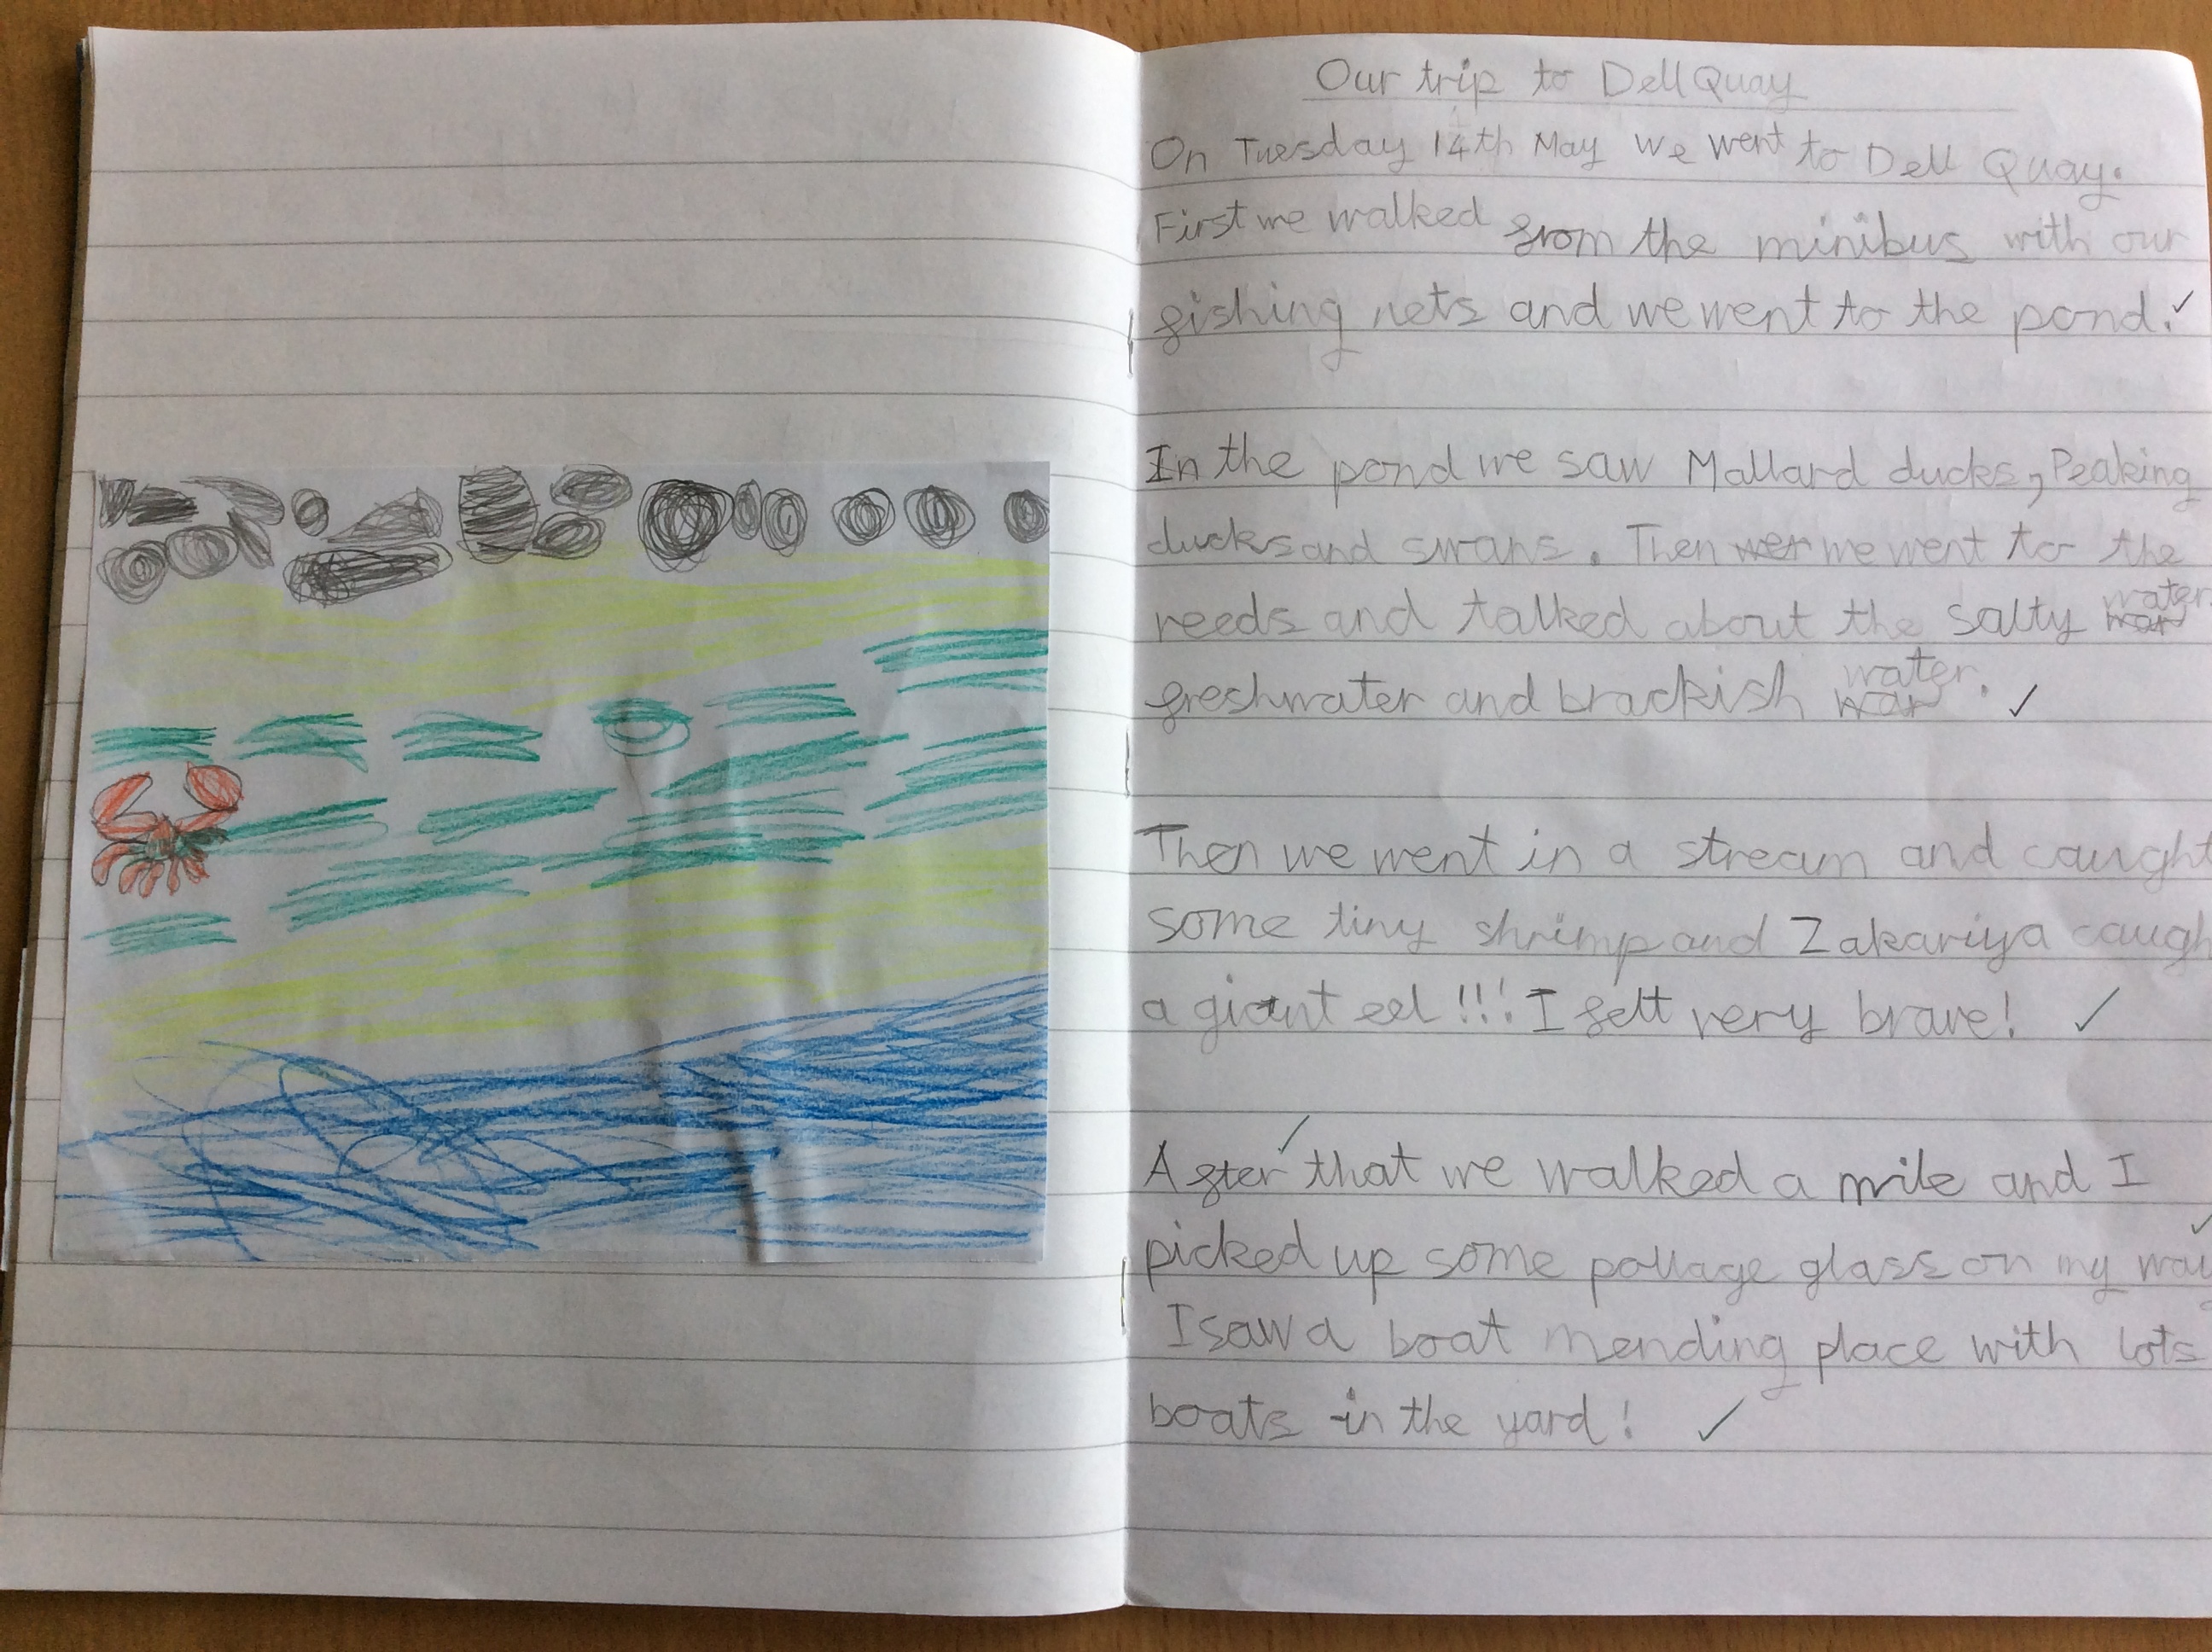 Our trip to Dell Quay
On Tuesday 14th May we went to Dell Quay.
First we walked from the minibus with our
fishing nets and we went to the pond.
In the pond we saw Mallard ducks, Peaking
ducks and swans. Then wer we went to the
reeds and talked about the salty water
freshwater and brackish water.
Then we went in a stream and caught
some tiny shrimp and Zakariya caugh
a giant eel!!! I felt very brave!
After that we walked a mile and I
picked up some pollage glass on my way
I saw a boat mending place with lots
boats in the yard!